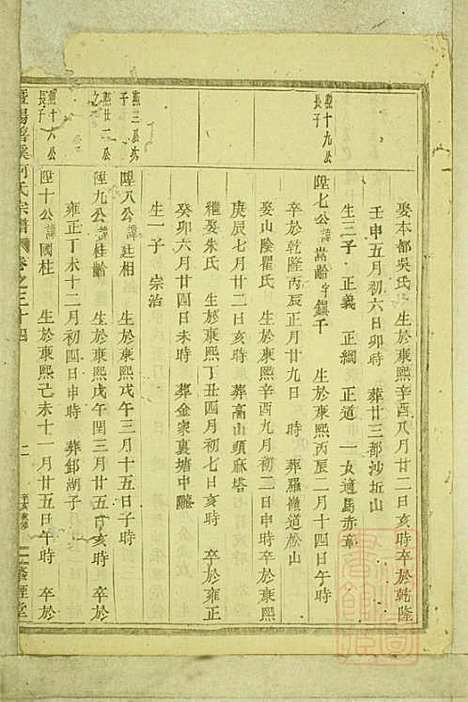 娶本都吳氏 生於康熙辛酉八月廿二日亥時卒於乾隆
壬申五月初六日卯時 葬廿三都沙坵山
生三子 正義 正綱 正道 一女適馬赤章
熙十九公長子
陞七公諱嵩齡字鎮千 生於康熙丙辰二月十四日午時
卒於乾隆丙辰正月廿九日 時 葬羅嶺道松山
娶山陰瞿氏 生於康熙辛酉九月初二日申時卒於康熙
庚辰七月廿二日亥時 葬高山頭麻塔
繼娶朱氏 生於康熙丁丑四月初七日亥時 卒於雍正
癸卯六月廿四日未時 葬金家裏塘中
生一子 宗治
熙三 次子
陞八公諱廷相 生於康熙戊午三月十五日子時
熙廿一公之子
陞九公諱桂齡 生於康熙戊午閏三月廿五日亥時 卒於
雍正丁未十二月初四日申時 葬鄒湖子
熙十六公長子
陞十公諱國柱 生於康熙己未十一月廿五日午時 卒於
暨陽 溪 氏宗譜 卷之三十四